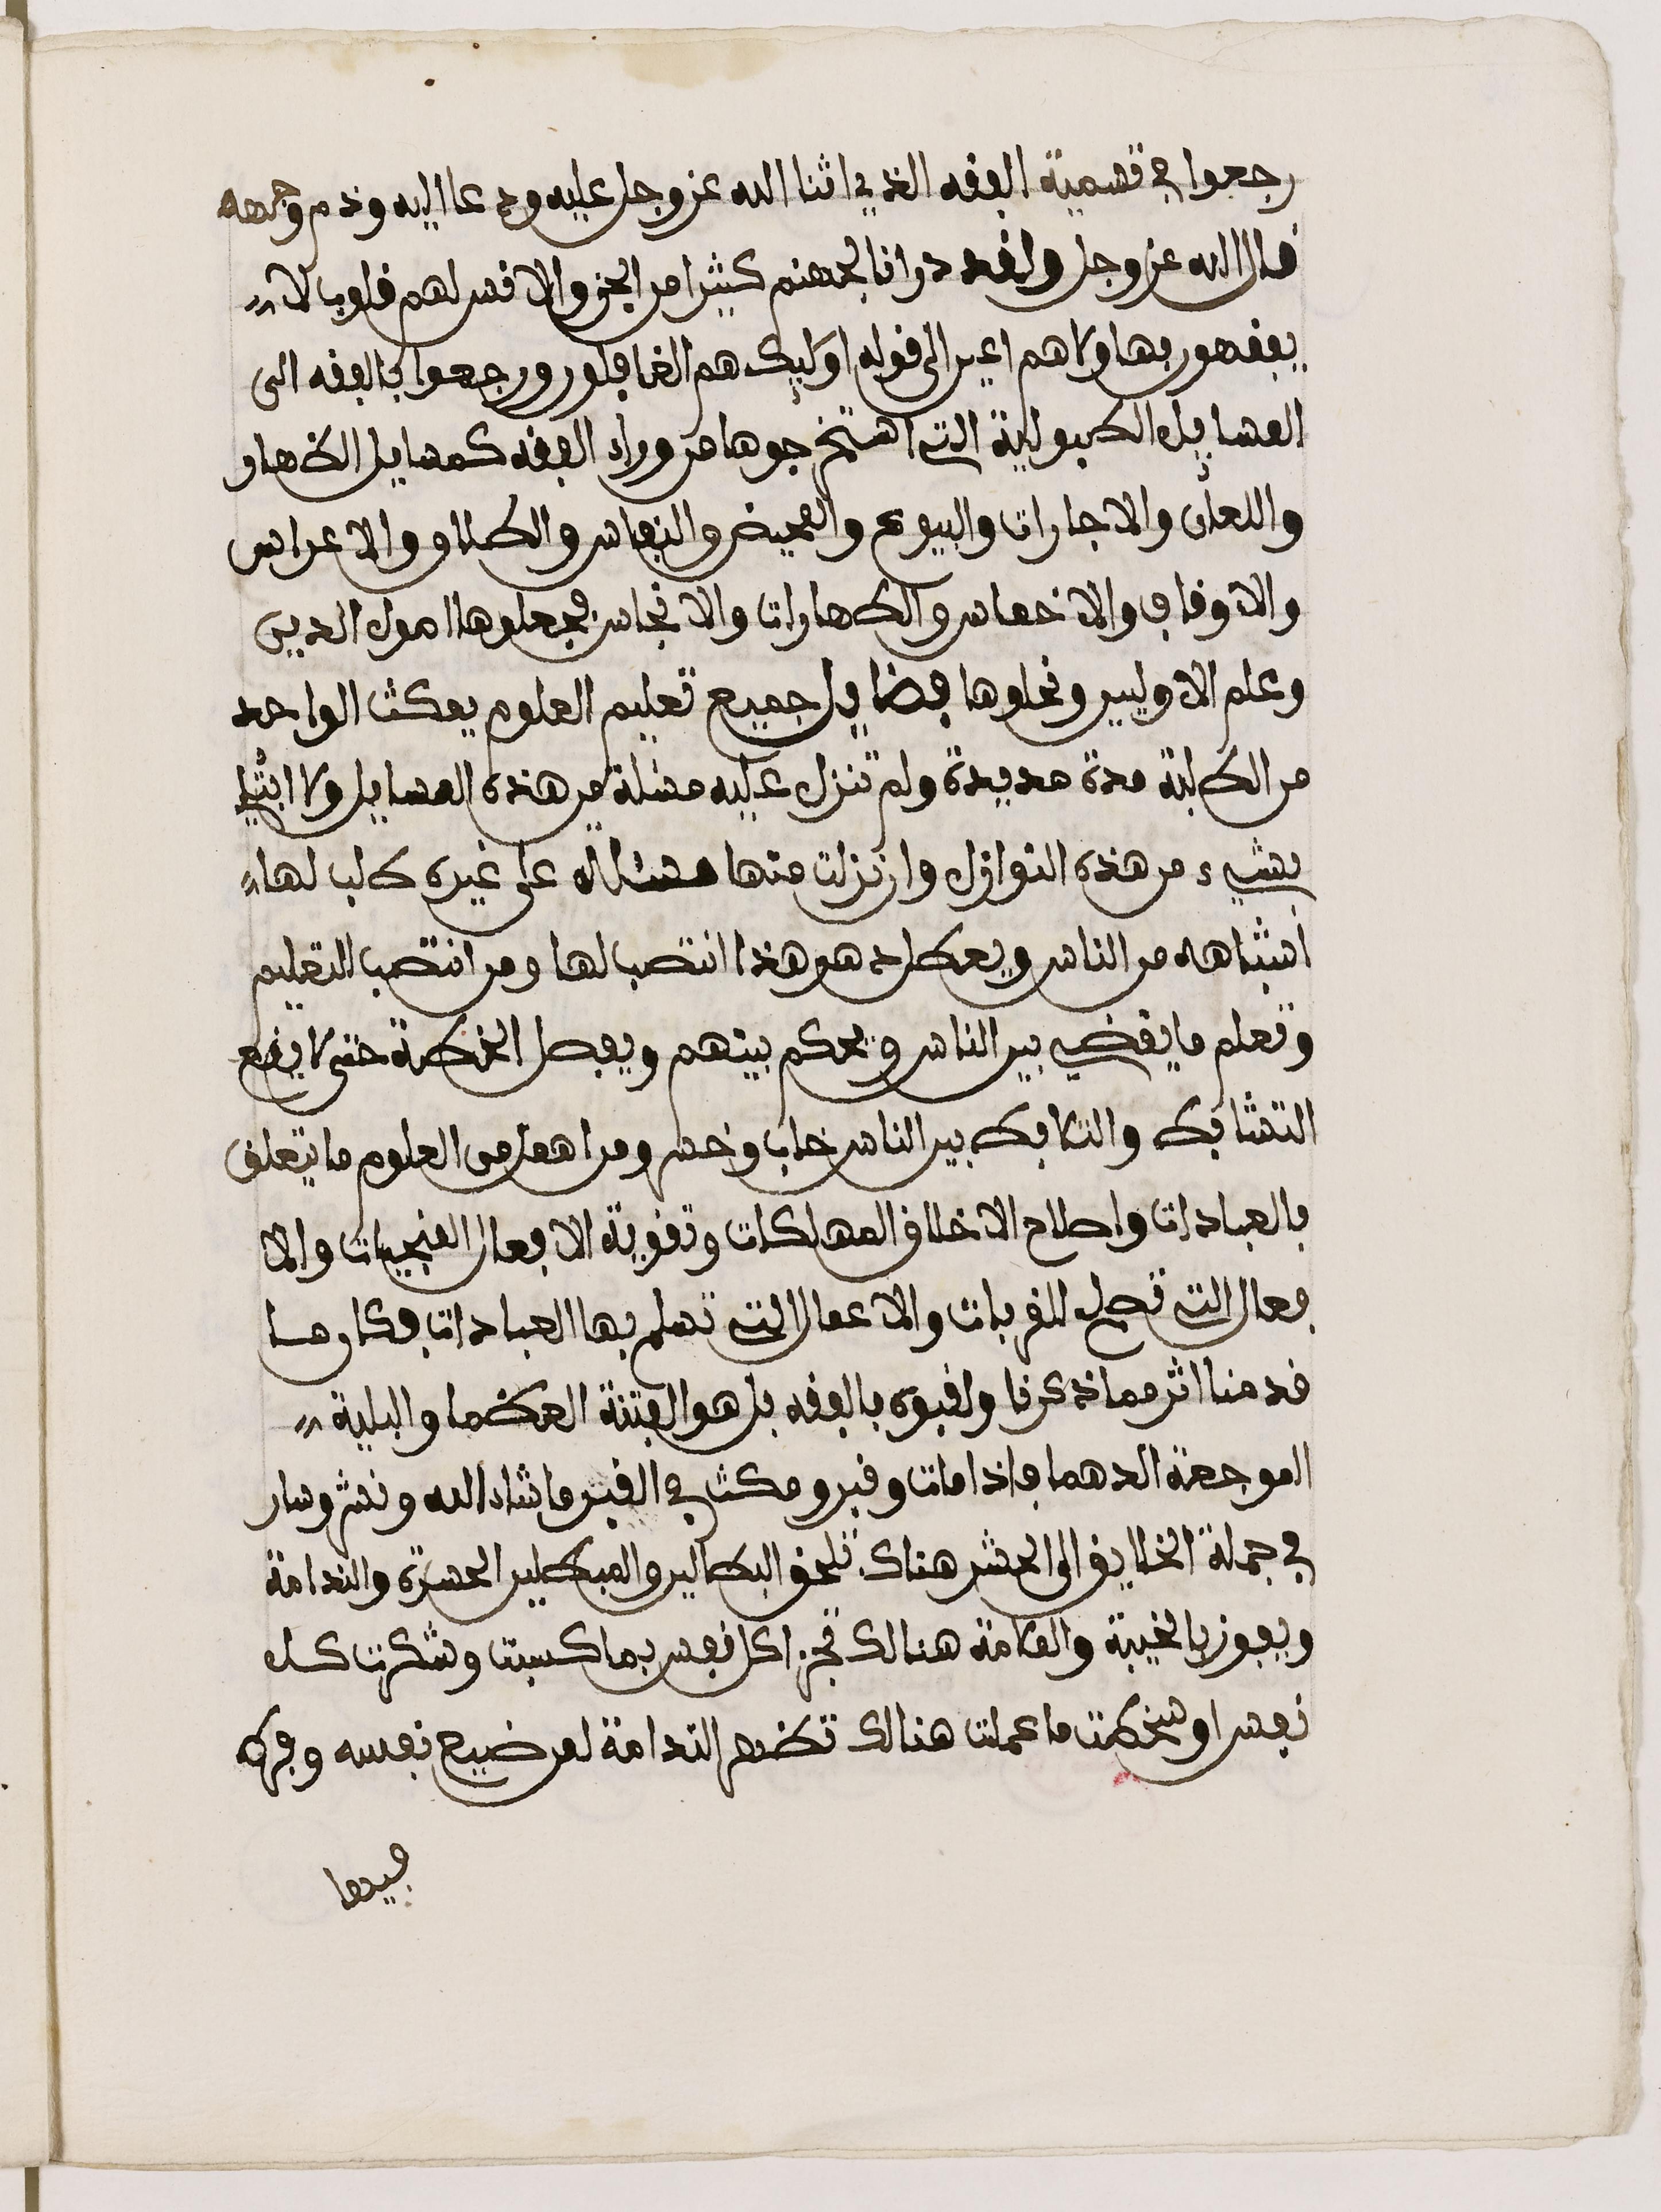 رجعوا في تسمية الفقه الذي اثنا الله عز وجل عليه ودعا اليه وذم وجهه
فال الله عز وجل ولفد درانا لجهنم كثيرا من الجن والانس لهم فلوب لا
يفقهون بها ولاهم اعين الى فوله اوليك هم الغافلون ورجعوا في الفقه الى
المسايل الطبولية التي استخرجوها من وراء الفقه كمسايل الظهار
واللعان والاجارات والبيوع والمحيض والنفاس والطلاق والاعراس
والاوفاف والاخماس والطهارات والانجاس فجعلوها اصول الدين
وعلم الاوليين ونحلوها فضايل جميع تعليم العلوم يمكث الواحد
من الطلبة مدة مديدة ولم تنزل عليه مسلة من هذه المسايل ولا ابتلي
بشيء من هذه النوازل وان نزلت منها مسئلة على غيره طلب لها
اشباهه من الناس ويعطل دهره هذا انتصب لها ومن انتصب التعليم
وتعلم ما يفضي بين الناس ويحكم بينهم ويفصل الخطة حتى لا يفع
التشابك والتلابك بين الناس خاب وخسر ومن اهمل من العلوم ما يتعلق
بالعبادات واصلاح الاخلاف المهلكات وتفوية الافعال المنجيات والا
فعال التي تصلح للفربات والاعمال التي تسلم بها العبادات فكان ما
فدمنا اثر مما ذكرنا ولفبوه بالفقه بل هو الفتنة العظما والبلية
الموجعة الدهما فاذا مات وفبر ومكث في الفبر ما شاء الله ونشر وسار
في جملة الخلايف الى الحشر هناك تلحف البطالين والمبطلين الحسرة والندامة
ويفوز بالخيبة والملامة هنالك تجزا كل نفس بما كسبت وشكرت كل
نفس او سخطت ما عملت هنالك تظهر الندامة لمن ضيع نفسه وفرط
فيما